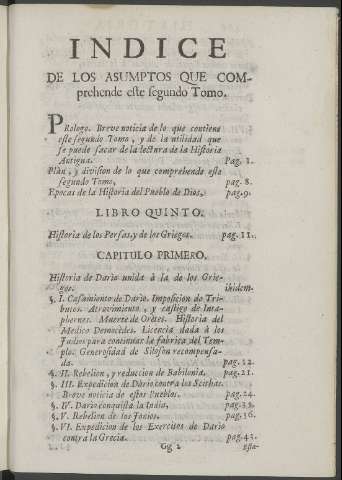 INDICE
DE LOS ASUMPTOS QUE COM-
prehende este segundo Tomo.
PRologo. Breve noticia de lo que contiene
este segundo Tomo, y de la utilidad que
se puede sacar de la lectura de la Historia
Antigua. Pag. 1.
Plan, y division de lo que comprehende este
segundo Tomo, pag. 8.
Epocas de la Historia del Pueblo de Dios, pag. 9.
LIBRO QUINTO.
Historia de los Persas, y de los Griegos. pag. 11.
CAPITULO PRIMERO.
Historia de Dario unida à la de los Grie-
gos. ibidem.
§. I. Casamiento de Dario. Imposicion de Tri-
butos. Atrevimiento, y castigo de Inta-
phernes. Muerte de Oretes. Historia del
Medico Democedes. Licencia dada à los
Judios para continuar la fabrica del Tem-
plo. Generosidad de Siloson recompensa-
da. pag. 12.
§. II. Rebelion, y reduccion de Babilonia. pag. 21.
§. III. Expedicion de Dario contra los Scithas.
Breve noticia de estos Pueblos. pag. 24.
§. IV. Dario conquista la India. pag. 35.
§. V. Rebelion de los Jonios. pag. 36.
§. VI. Expedicion de los Exercitos de Dario
contra la Grecia. pag. 43.
Gg 2 esta-